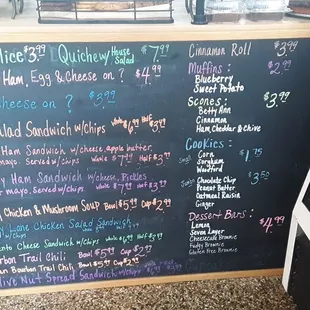 lice $3.99 Quiche w/ House Salad $7.99
Ham, Egg & Cheese on ? $4.99
cheese on ? $3.99
alad Sandwich w/chips Whole $6.99 Half $3.99
Ham Sandwich w/cheese, apple butter,
mayo. Served w/chips Whole $7.99 Half $3.99
y Ham Sandwich w/cheese, Pickles
mayo. Served w/chips Whole $7.99 Half $3.99
Chicken & Mushroom Soup Bowl $5.99 Cup $2.99
Chicken Salad Sandwich
w/chips Whole $6.99 Half $3.99
nto Cheese Sandwich w/chips
rbon Trail Chili Bowl $5.99 Cup $2.99
an Bourbon Trail Chili Bowl $5.99 Cup $2.99
live Nut Spread Sandwich w/chips
Cinnamon Roll $3.99
Muffins: $2.99
Blueberry
Sweet Potato
Scones: $3.99
Betty Ann
Cinnamon
Ham Cheddar & Chive
Cookies:
Small Corn $1.75
Sorghum
Woodford
Chocolate Chip $3.50
Peanut Butter
Oatmeal Raisin
Ginger
Dessert Bars: $4.99
Lemon
Seven Layer
Cheesecake Brownie
Fudgy Brownie
Gluten Free Brownie